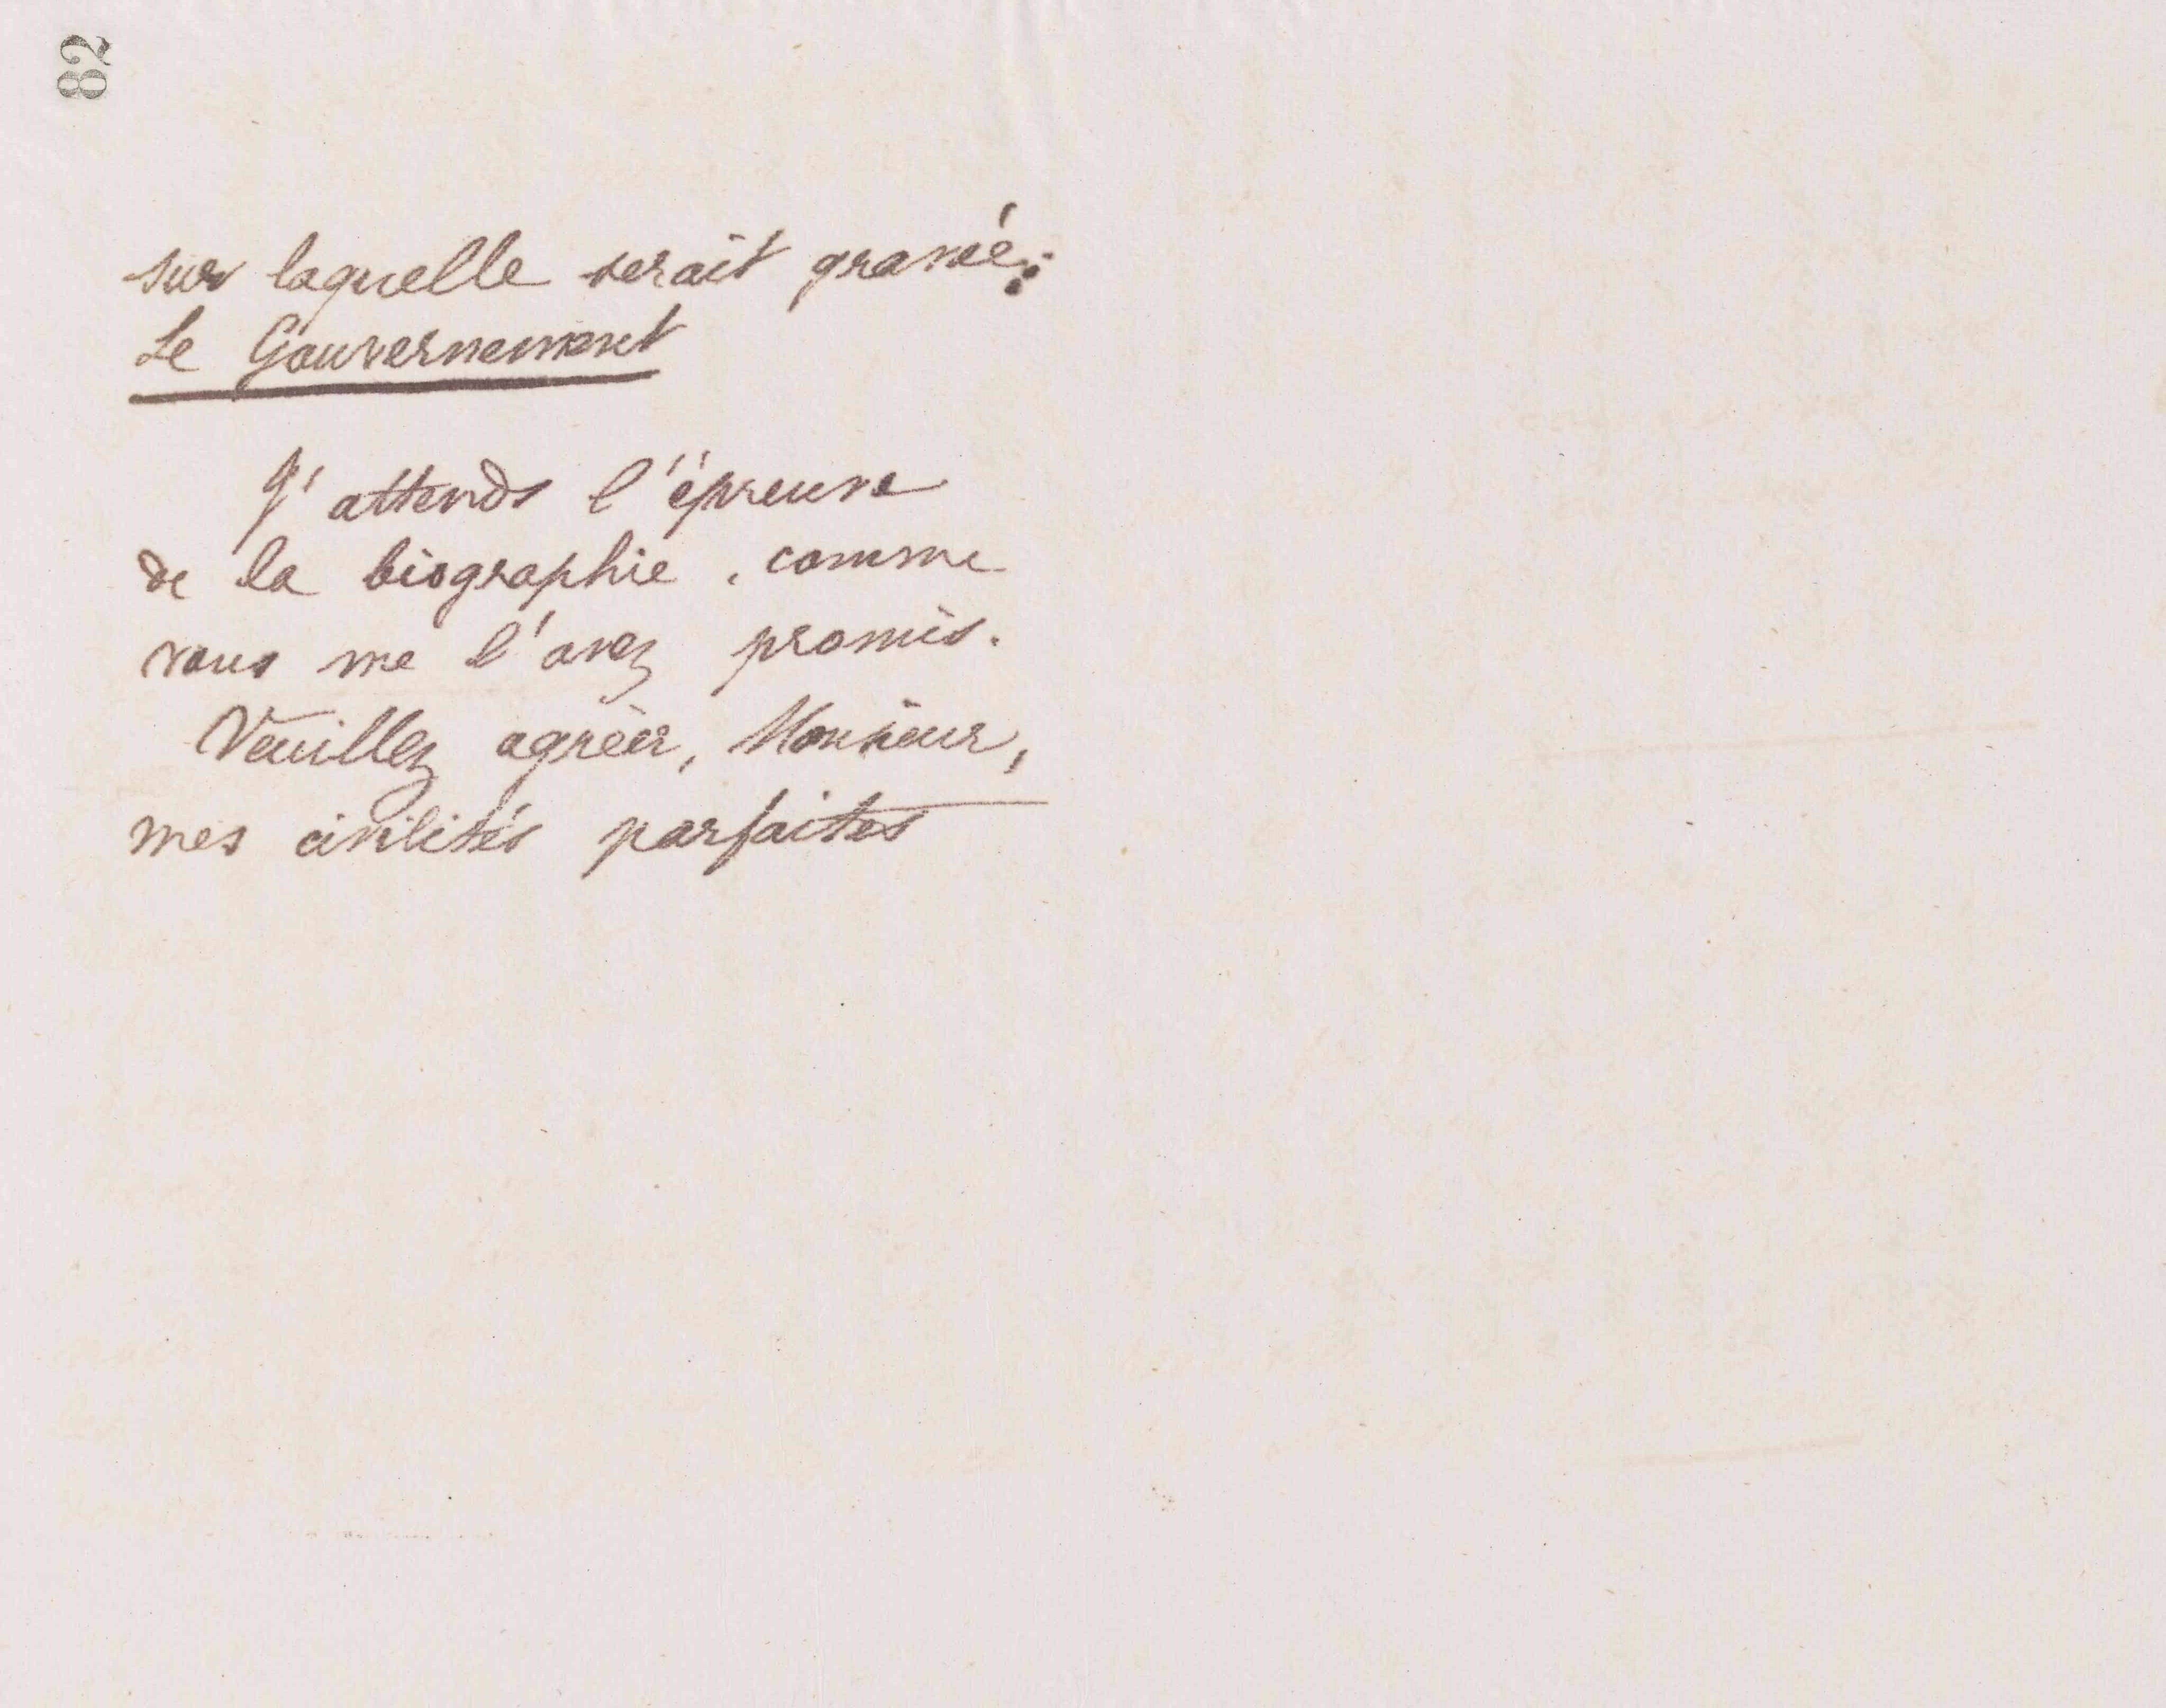 82
sur laquelle serait gravée :
Le Gouvernement
J'attends l'épreuve
de la biographie, comme
vous me l'avez promis.
Veuillez agréer, Monsieur,
mes civilités parfaites